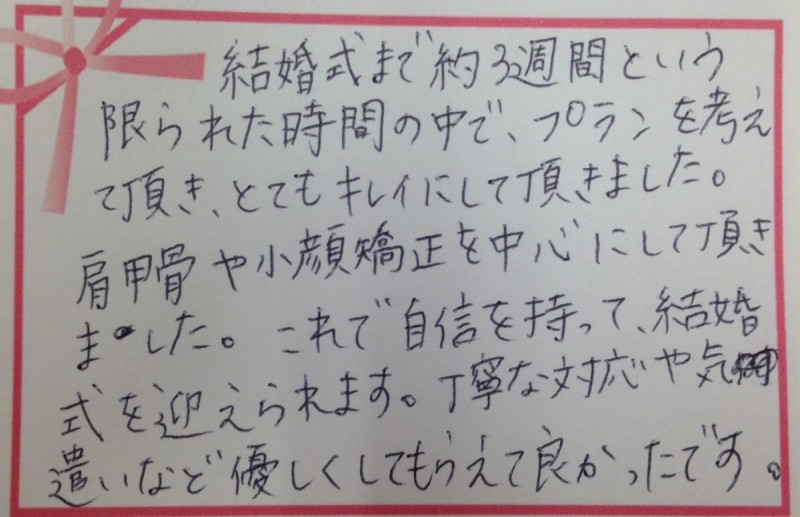 結婚式まで約3週間という
限られた時間の中で、プランを考え
て頂き、とてもキレイにして頂きました。
肩甲骨や小顔矯正を中心にして頂き
ました。これで自信を持って、結婚
式を迎えられます。丁寧な対応や気
遣いなど優しくしてもらえて良かったです。